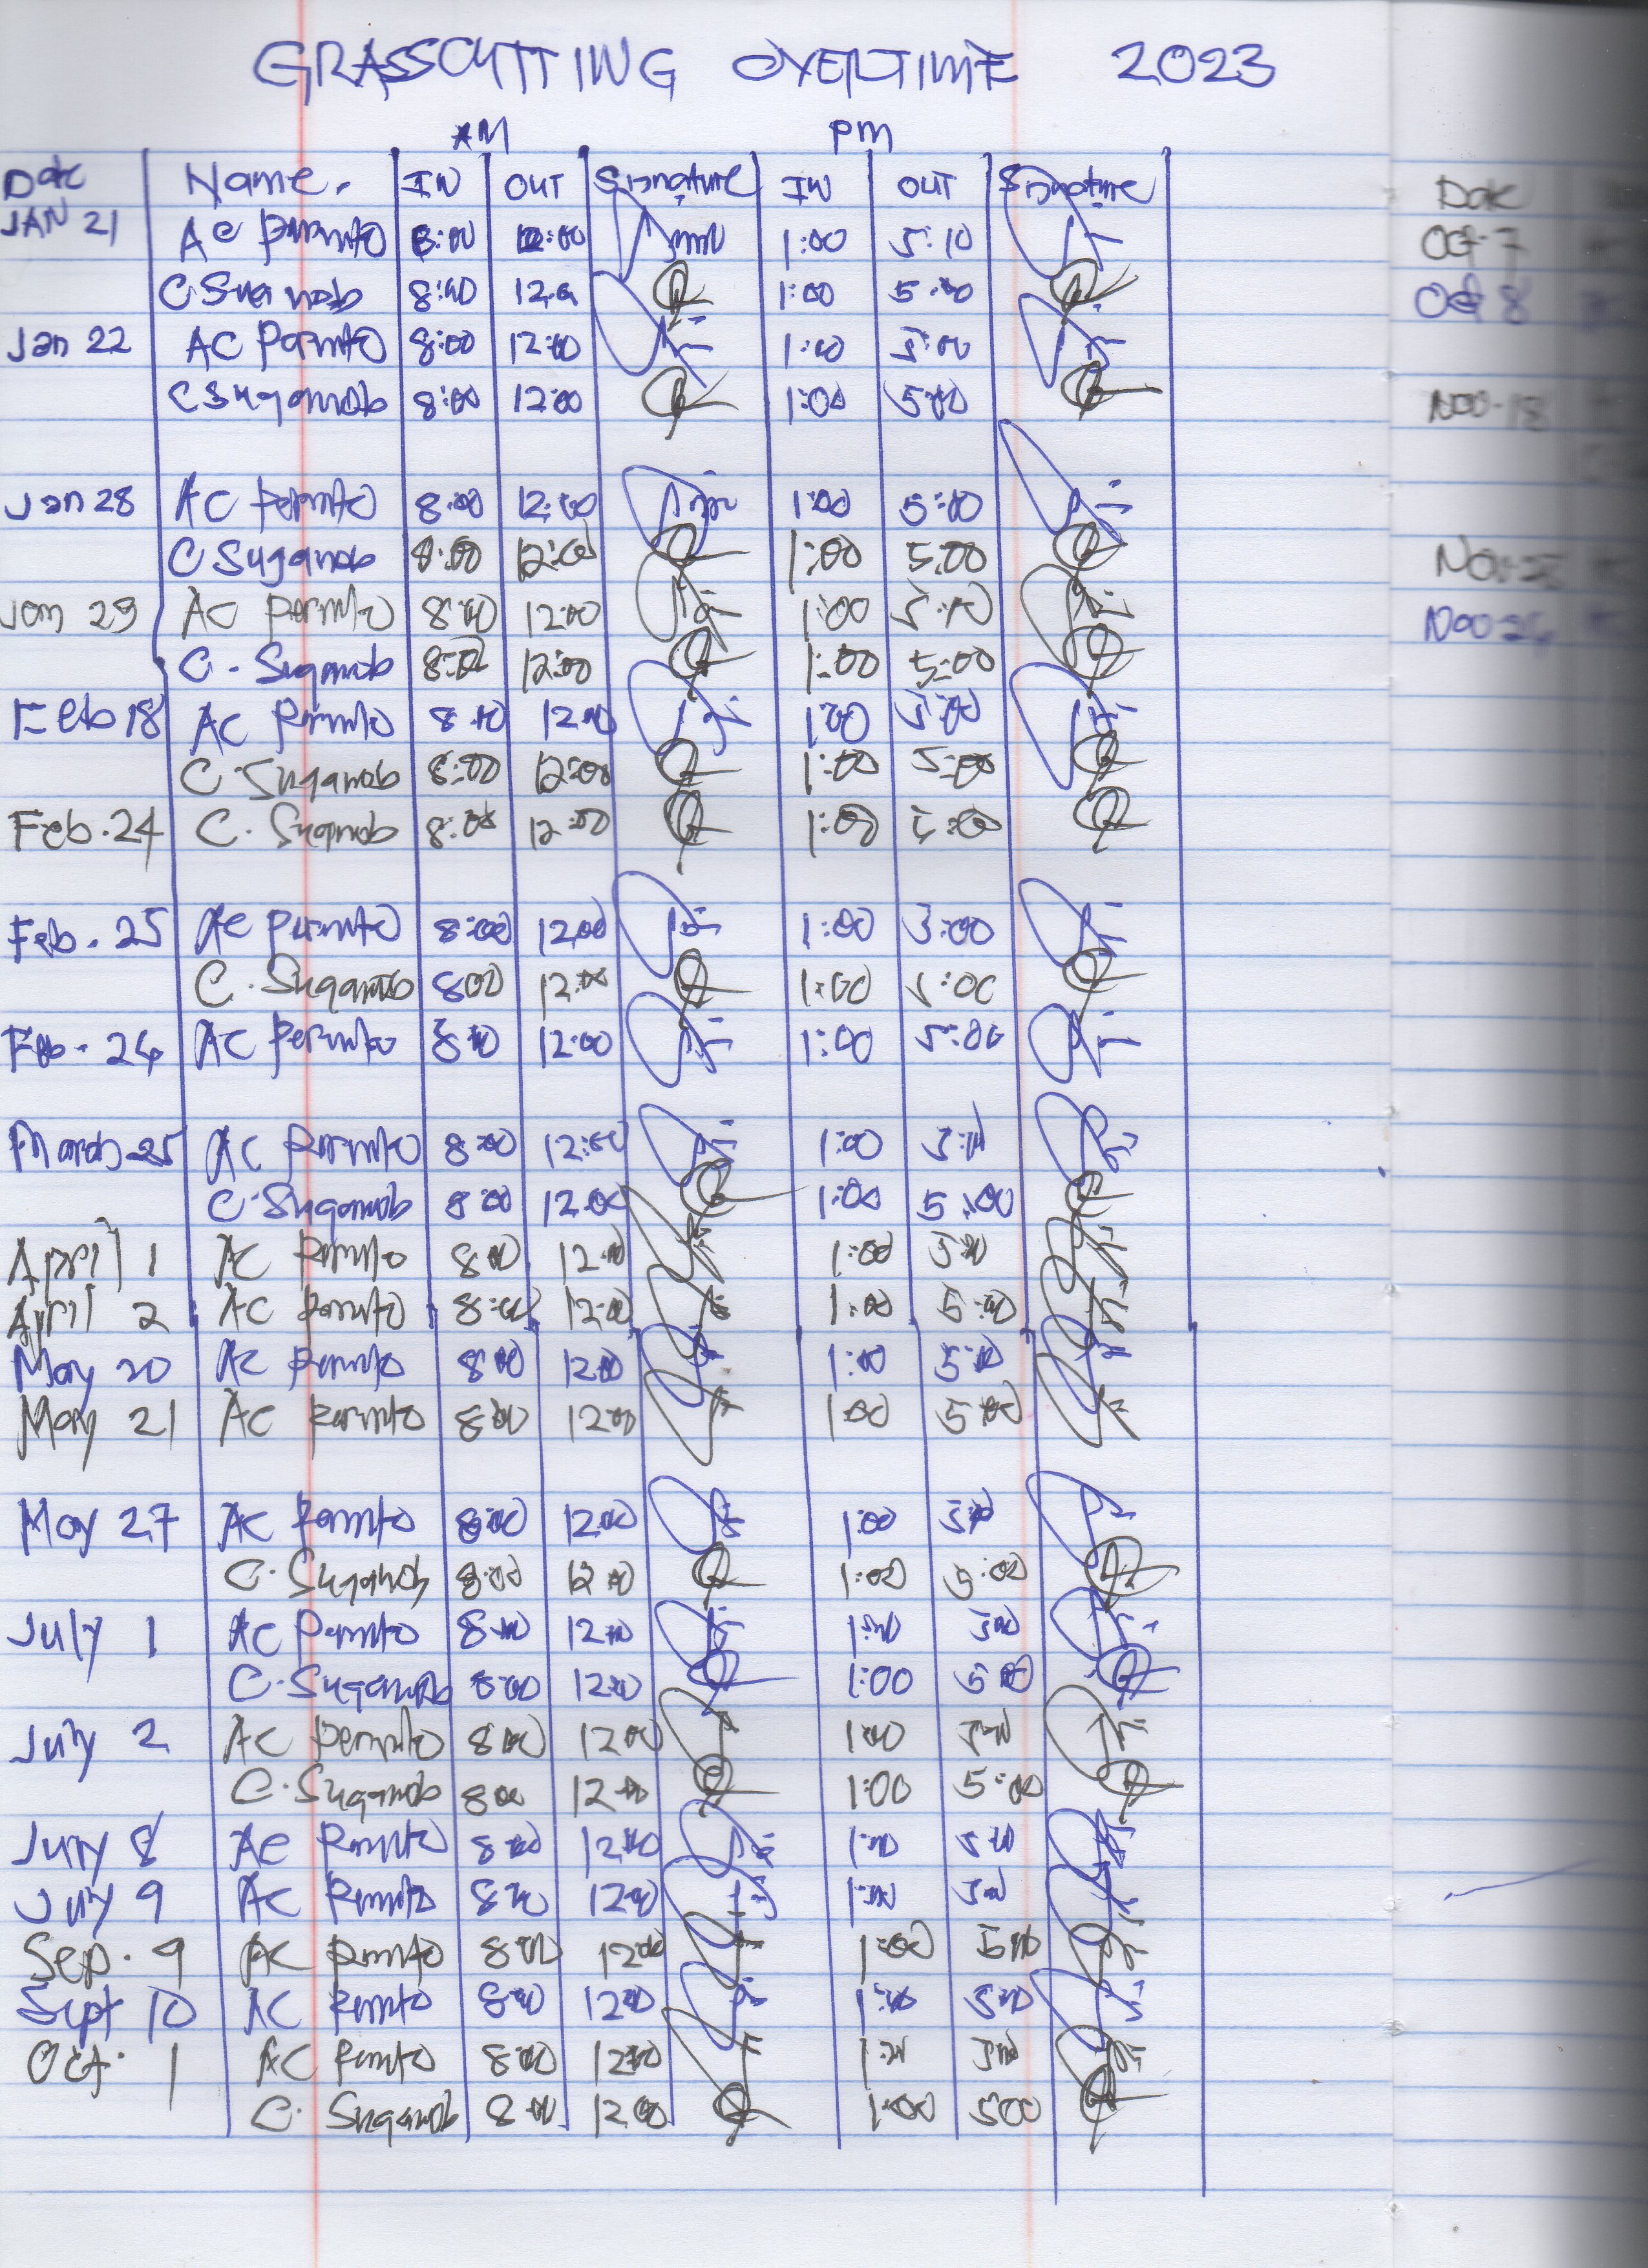 GRASSCUTTING OVERTIME 2023
AM PM
Date Name. IN OUT Signature IN OUT Signature
JAN 21 AC Permito 8:00 12:00 1:00 5:10
C Suganob 8:00 12:00 1:00 5:00
Jan 22 AC Permito 8:00 12:00 1:00 5:00
C Suganob 8:00 12:00 1:00 5:00
Jan 28 AC Permito 8:00 12:00 1:00 5:00
C Suganob 8:00 12:00 1:00 5:00
Jan 29 AC Permito 8:00 12:00 1:00 5:00
C. Suganob 8:00 12:00 1:00 5:00
Feb 18 AC Permito 8:00 12:00 1:00 5:00
C. Suganob 8:00 12:00 1:00 5:00
Feb. 24 C. Suganob 8:00 12:00 1:00 5:00
Feb. 25 AC Permito 8:00 12:00 1:00 5:00
C. Suganob 8:00 12:00 1:00 5:00
Feb. 26 AC Permito 8:00 12:00 1:00 5:00
March 25 AC Permito 8:00 12:00 1:00 5:00
C. Suganob 8:00 12:00 1:00 5:00
April 1 AC Permito 8:00 12:00 1:00 5:00
April 2 AC Permito 8:00 12:00 1:00 5:00
May 20 AC Permito 8:00 12:00 1:00 5:00
May 21 AC Permito 8:00 12:00 1:00 5:00
May 27 AC Permito 8:00 12:00 1:00 5:00
C. Suganob 8:00 12:00 1:00 5:00
July 1 AC Permito 8:00 12:00 1:00 5:00
C. Suganob 8:00 12:00 1:00 5:00
July 2 AC Permito 8:00 12:00 1:00 5:00
C. Suganob 8:00 12:00 1:00 5:00
July 8 AC Permito 8:00 12:00 1:00 5:00
July 9 AC Permito 8:00 12:00 1:00 5:00
Sep. 9 AC Permito 8:00 12:00 1:00 5:00
Sept 10 AC Permito 8:00 12:00 1:00 5:00
Oct. 1 AC Permito 8:00 12:00 1:00 5:00
C. Suganob 8:00 12:00 1:00 5:00
Date
Oct. 7
Oct 8
Nov-18
Nov-25
Nov-26